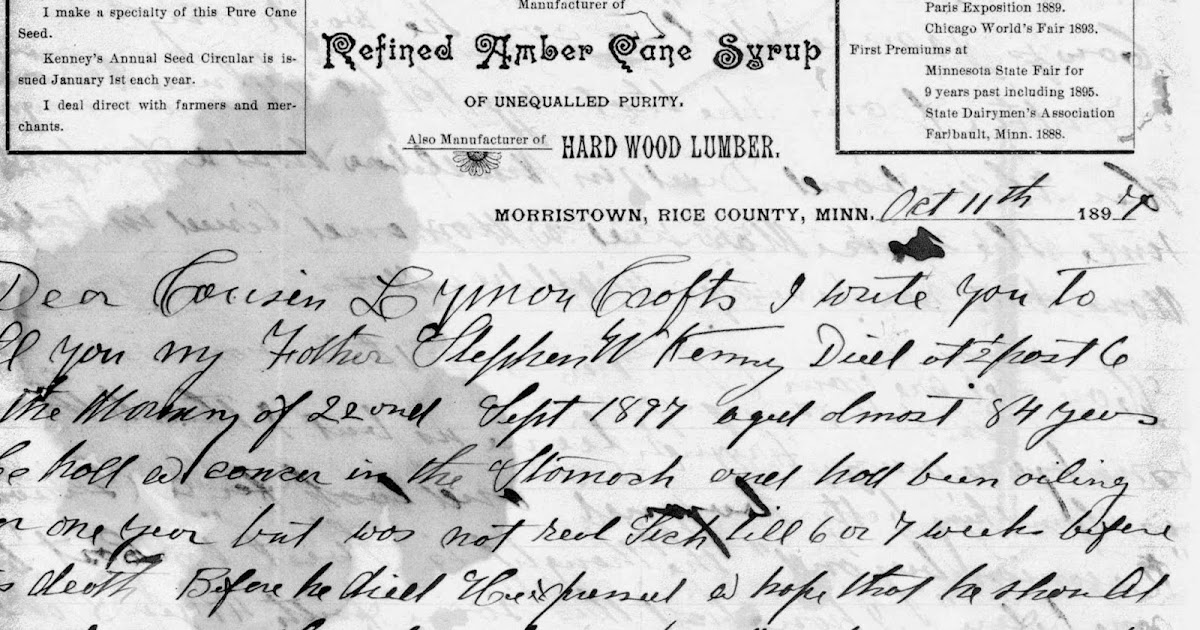 I make a specialty of this Pure Cane
Seed.
Kenney's Annual Seed Circular is is-
sued January 1st each year.
I deal direct with farmers and mer-
chants.
Manufacturer of
Refined Amber Cane Syrup
OF UNEQUALLED PURITY.
Also Manufacturer of
HARD WOOD LUMBER.
Paris Exposition 1889.
Chicago World's Fair 1893.
First Premiums at
Minnesota State Fair for
9 years past including 1895.
State Dairymen's Association
Farlbault, Minn. 1888.
MORRISTOWN, RICE COUNTY, MINN. Oct 11th 1897
Dear Cousin Lyman Crofts I write you to
ll you my Father Stephen W Kenny Died at ½ past 6
the Morning of 22ond Sept 1897 aged almost 84 years
he had a cancer in the Stomach and had been ailing
or one year but was not real Sick till 6 or 7 weeks before
s death Before he died He expressed a hope that he should